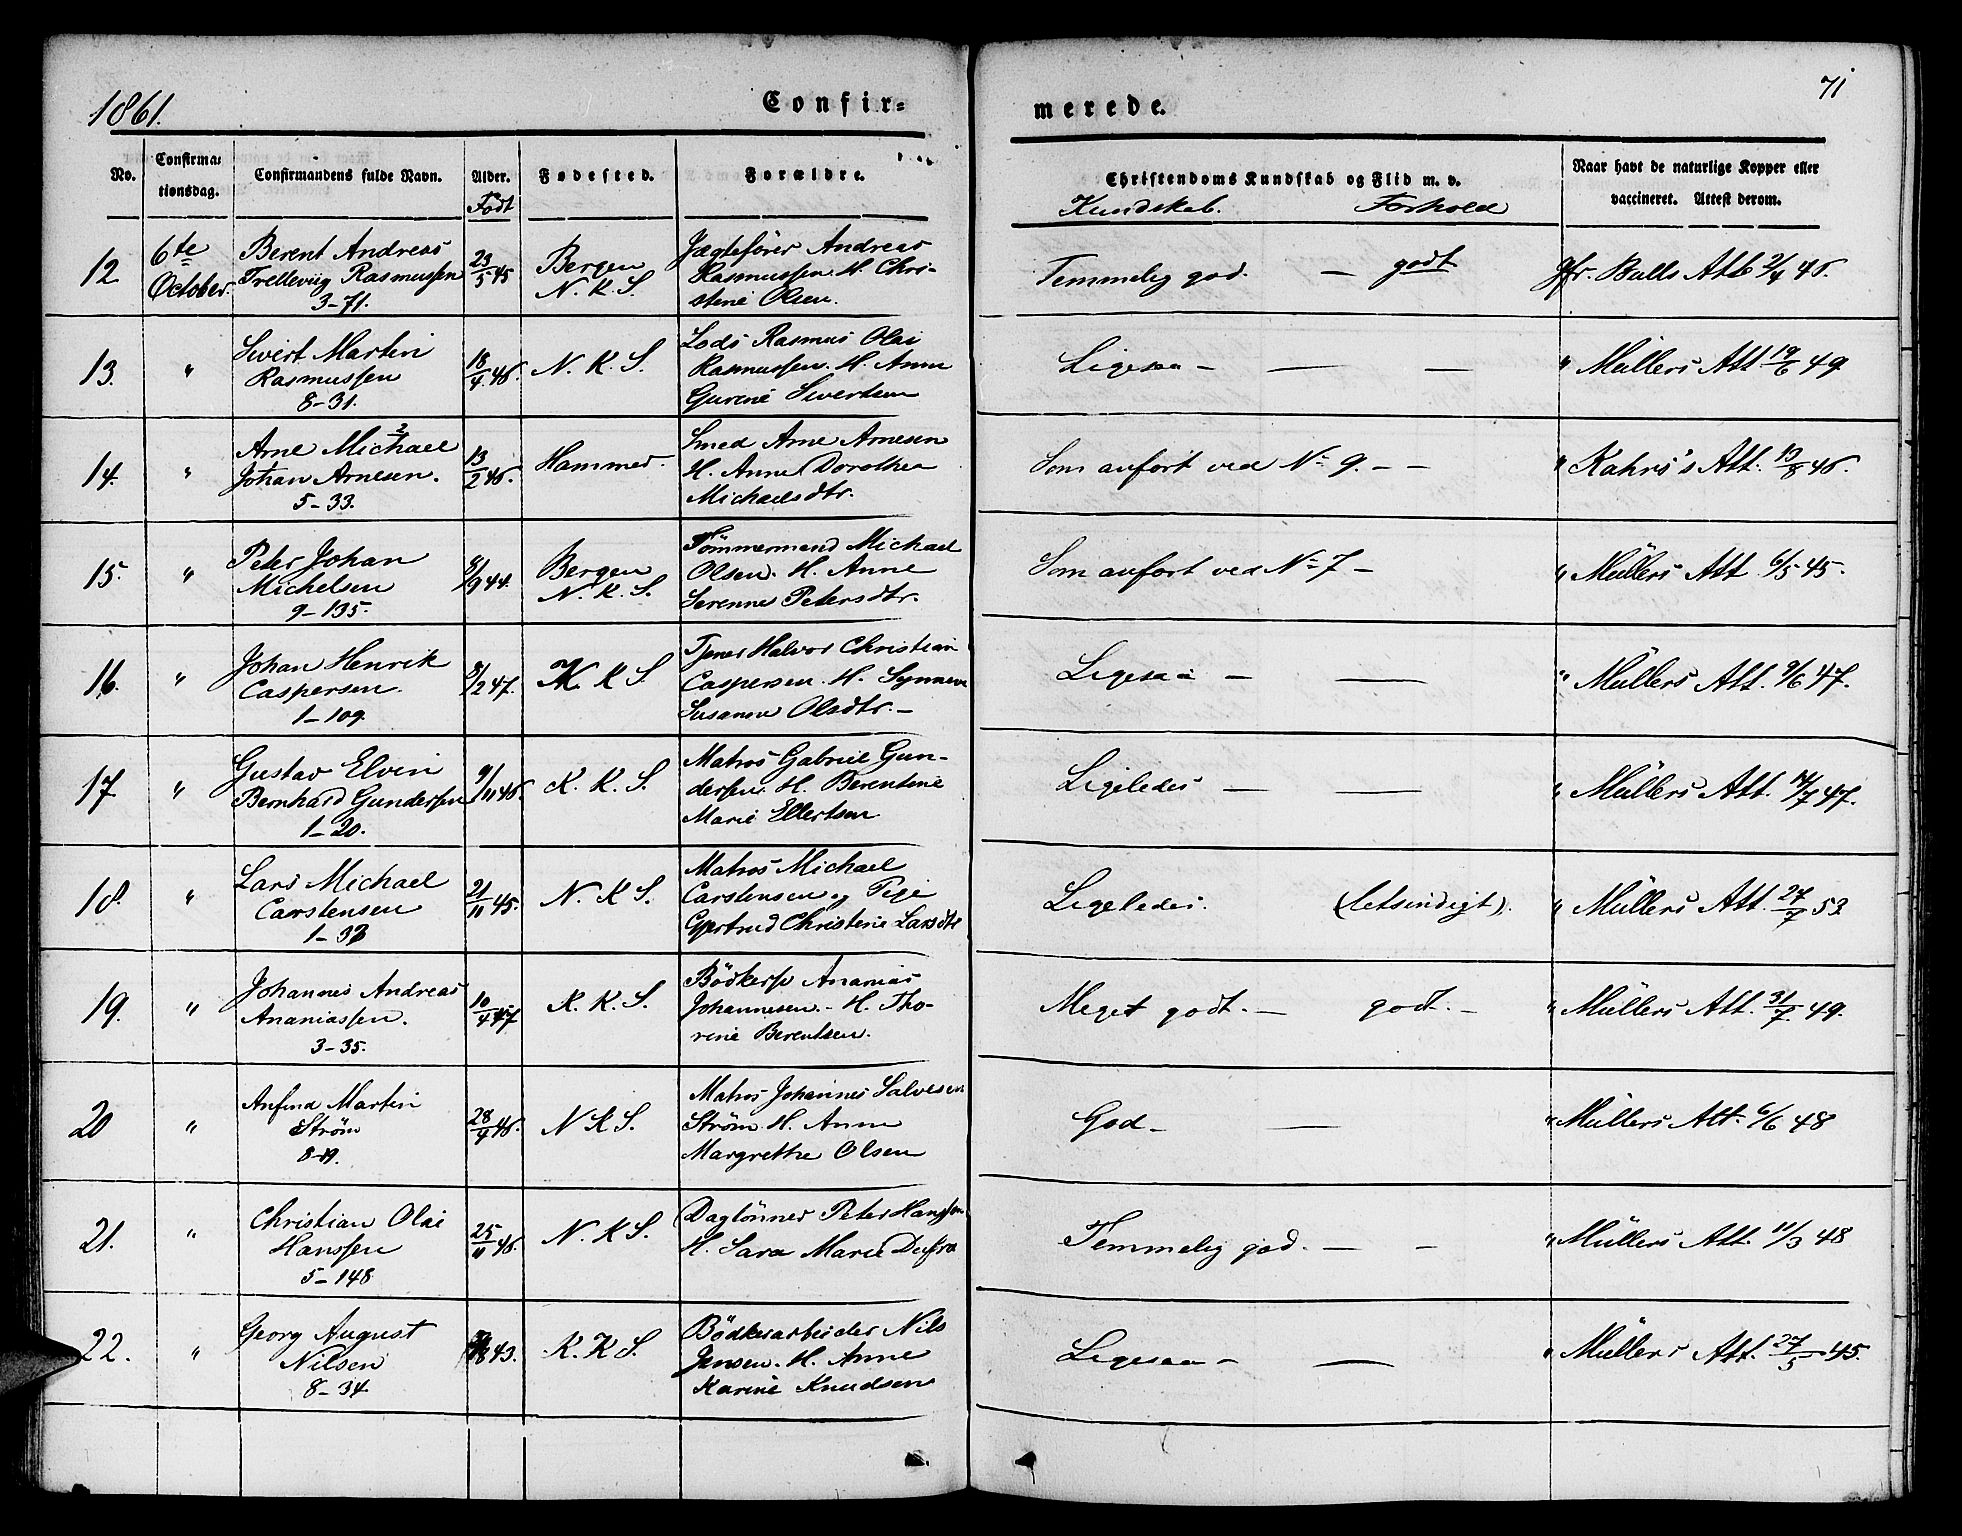 1861.
Confir=
merede.
71
No.
Confirma=
tionsdag.
Confirmandens fulde Navn.
Alder.
Født
Fødested.
Forældre.
Christendoms Kundskab og Flid m. v.
Kundskab.
Forhold
Naar havt de naturlige Kopper eller
vaccineret. Attest derom.
12
6te
October.
Berent Andreas
Trellevig Rasmussen
3-71.
23/5 45
Bergen
N. K. S.
Jægtefører Andreas
Rasmussen. H. Chri-
stine Olsen.
Temmelig god. — godt
Jfr. Bulls Att 2/4 46.
13.
"
Sivert Martin
Rasmussen
8-31.
18/4 46.
N. K. S.
Lods Rasmus Olai
Rasmussen. H. Anne
Gurine Sivertsen
Ligesaa — — —
" Müllers Att. 19/6 49
14.
"
Arne Michael
Johan Arnesen.
5-33.
13/2 46.
Hammer.
Smed Arne Arnesen
H. Anne Dorothea
Michaelsdtr.
Som anført ved No 9. - -
" Kahrs's Att. 13/8 46.
15.
"
Peter Johan
Michelsen
9-135.
8/9 44.
Bergen
N. K. S.
Tømmermand Michael
Olsen. H. Anne
Serenne Petersdtr.
Som anført ved No 7 -
" Müllers Att 6/5 45.
16.
"
Johan Henrik
Caspersen.
1-109.
8/2 47.
N. K. S.
Tjener Halvor Christian
Caspersen. H. Synneve
Susanne Olsdtr. -
Ligesaa — —
" Müllers Att. 9/6 47.
17
"
Gustav Elvin
Bernhard Gundersen
1-20.
9/11 46.
K. K. S.
Matros Gabriel Gun-
dersen. H. Berentine
Marie Ellertsen
Ligeledes — —
" Müllers Att. 14/7 47.
18.
"
Lars Michael
Carstensen
1-37
21/11 45.
N. K. S.
Matros Michael
Carstensen og Pige
Gjertrud Christine Larsdtr
Ligeledes. (letsindigt).
" Müllers Att. 27/7 53
19.
"
Johannes Andreas
Ananiassen.
3-35.
10/4 47
K. K. S.
Bødkersv Ananias
Johannesen. - H. Tho-
rine Berentsen.
Meget godt. — godt. -
" Müllers Att. 31/7 49.
20
"
Anfind Martin
Strøm
8-19.
28/9 46.
N K S.
Matros Johannes Salvesen
Strøm. H. Anne
Margrethe Olsen
God - —
" Müllers Att. 6/6 48
21.
"
Christian Olai
Hanssen
5-148
25/11 46.
N. K S.
Daglønner Peter Hanssen
H. Sara Marie
Temmelig god. — -
" Müllers Att. 11/3 48
22.
"
Georg August
Nilsen
8-34
43.
K. K S.
Bødkerarbeider Nils
Jensen. H. Anne
Karine Knudsen
Ligesaa - —
" Müllers Att. 27/5 45.